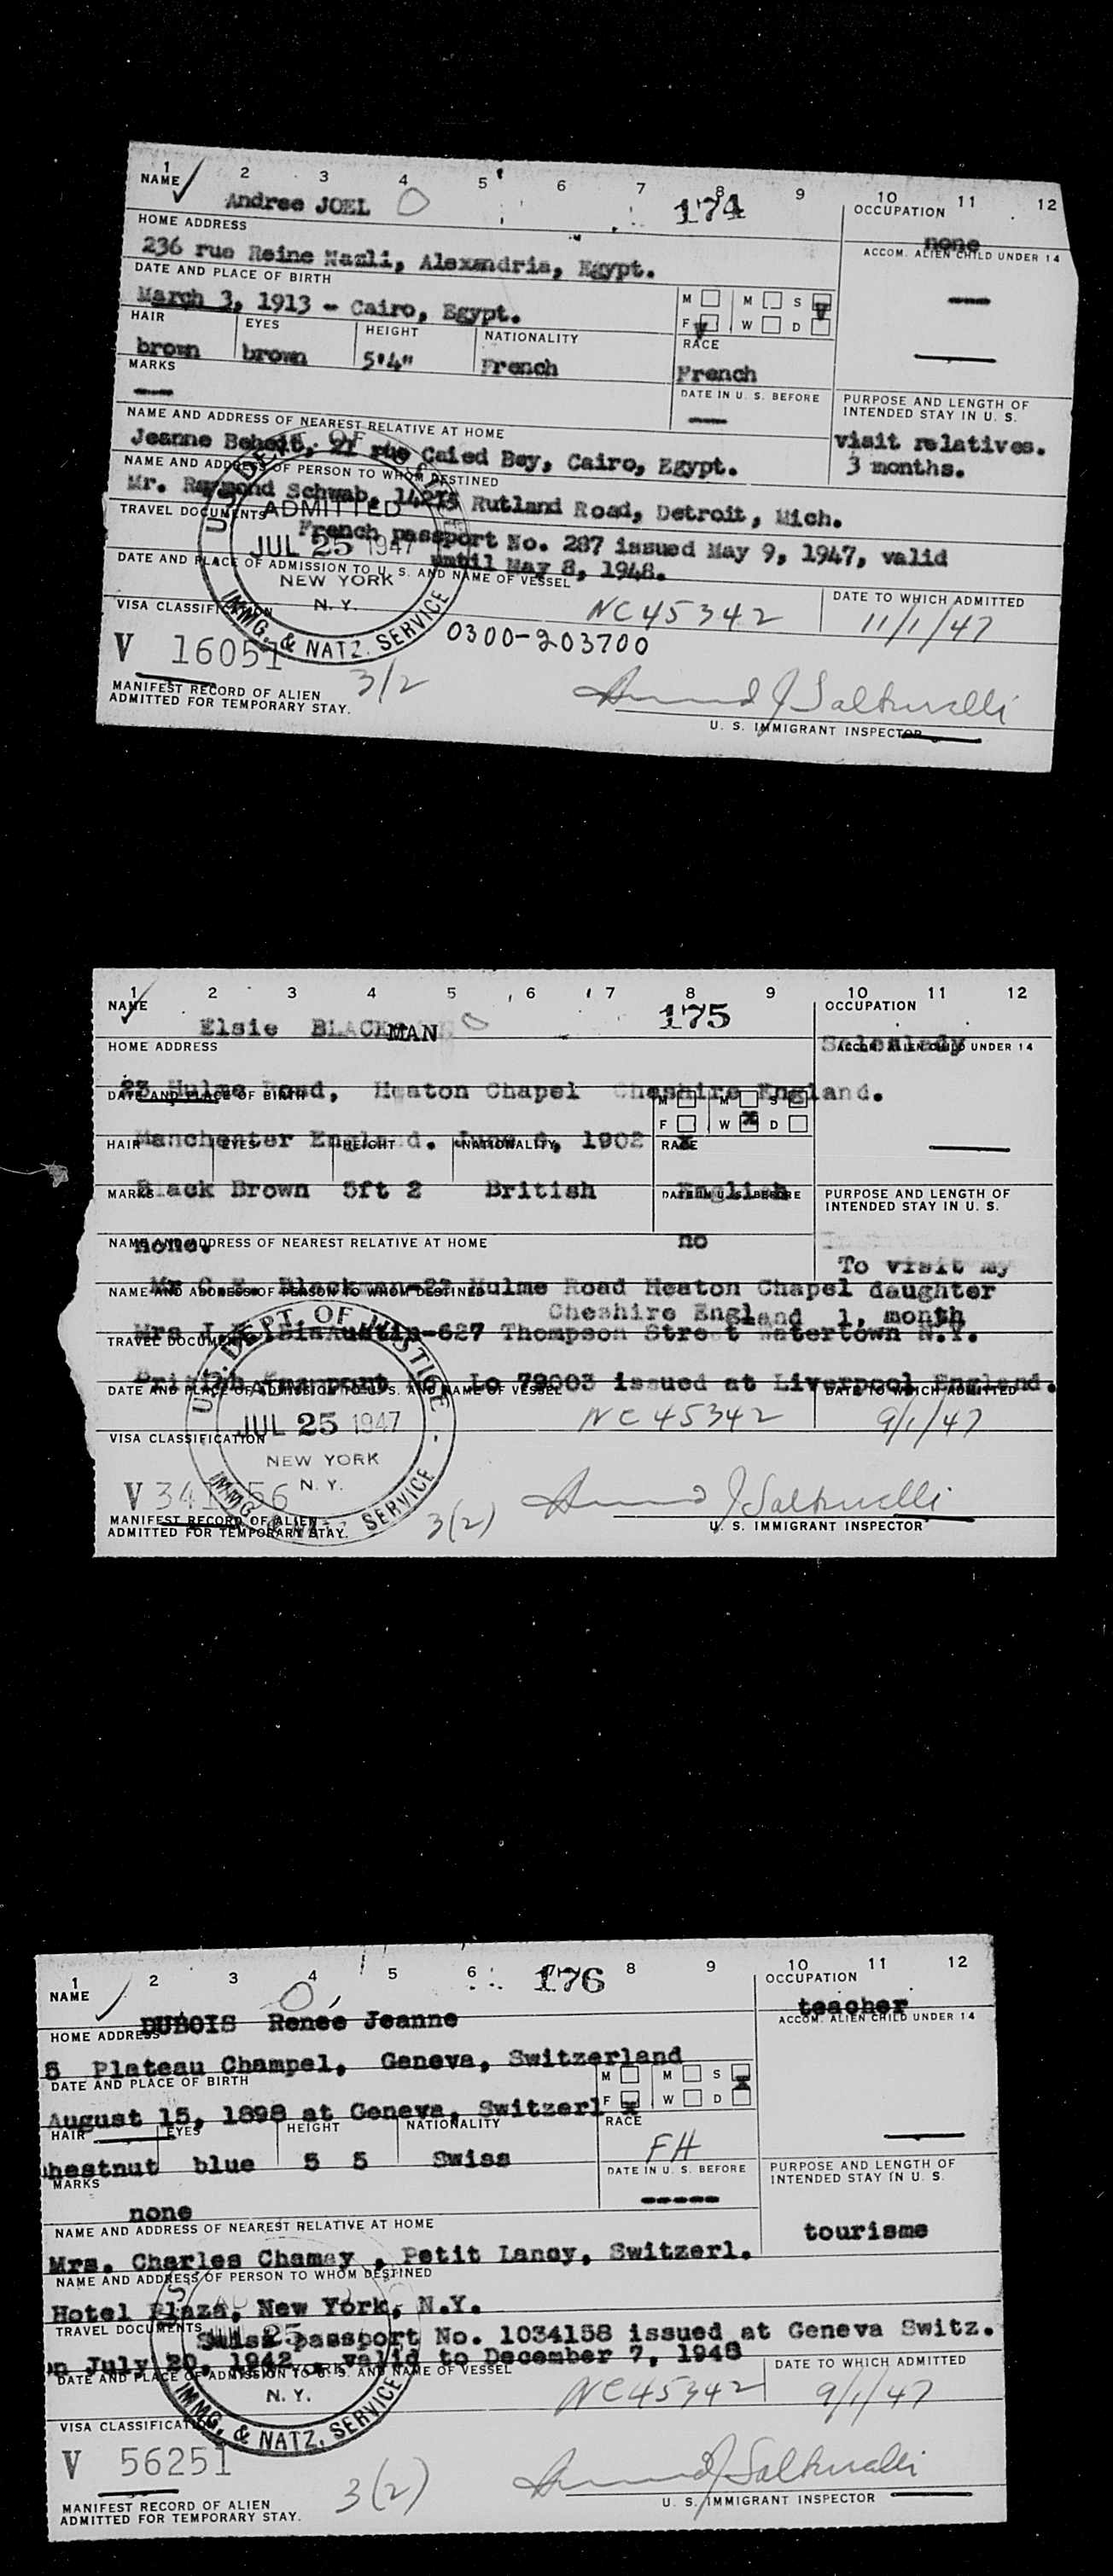 1 2 3 4 5 6 7 8 9 10 11 12
NAME 174 OCCUPATION
Andree JOEL none
HOME ADDRESS ACCOM. ALIEN CHILD UNDER 14
236 rue Reine Nazli, Alexandria, Egypt.
DATE AND PLACE OF BIRTH M M S
March 3, 1913 - Cairo, Egypt. F W D
HAIR EYES HEIGHT NATIONALITY RACE
brown brown 5'4" French French
MARKS DATE IN U. S. BEFORE PURPOSE AND LENGTH OF
INTENDED STAY IN U. S.
NAME AND ADDRESS OF NEAREST RELATIVE AT HOME visit relatives.
Jeanne 21 rue Caied Bey, Cairo, Egypt. 3 months.
NAME AND ADDRESS OF PERSON TO WHOM DESTINED
Mr. Raymond Schwab, Rutland Road, Detroit, Mich.
TRAVEL DOCUMENTS ADMITTED
French passport No. 287 issued May 9, 1947, valid
until May 8, 1948.
JUL 25 1947
DATE AND PLACE OF ADMISSION TO U. S. AND NAME OF VESSEL
NEW YORK
N. Y.
IMMG. & NATZ. SERVICE
NC 45342 DATE TO WHICH ADMITTED
11/1/47
VISA CLASSIFICATION 0300-203700
V 16051
3/2
MANIFEST RECORD OF ALIEN
ADMITTED FOR TEMPORARY STAY.
U. S. IMMIGRANT INSPECTOR
1 2 3 4 5 6 7 8 9 10 11 12
NAME 175 OCCUPATION
Elsie BLACKMAN Saleslady
HOME ADDRESS ACCOM. ALIEN CHILD UNDER 14
23 Hulme Road, Heaton Chapel Cheshire England.
DATE AND PLACE OF BIRTH M M S
F W D
Manchester England. 1902
HAIR EYES HEIGHT NATIONALITY RACE
Black Brown 5ft 2 British English
MARKS DATE IN U. S. BEFORE PURPOSE AND LENGTH OF
INTENDED STAY IN U. S.
none. no
NAME AND ADDRESS OF NEAREST RELATIVE AT HOME
To visit my
Blackman-23 Hulme Road Heaton Chapel daughter
NAME AND ADDRESS OF PERSON TO WHOM DESTINED
Cheshire England 1, month
Austin-627 Thompson Street Watertown N.Y.
TRAVEL DOCUMENTS
British Passport Lo 72003 issued at Liverpool England.
DATE AND PLACE OF ADMISSION TO U. S. AND NAME OF VESSEL DATE TO WHICH ADMITTED
U. S. DEPT. OF JUSTICE
JUL 25 1947
NEW YORK
N. Y.
IMMG. SERVICE
NC 45342 9/1/47
VISA CLASSIFICATION
3(2)
MANIFEST RECORD OF ALIEN
ADMITTED FOR TEMPORARY STAY.
U. S. IMMIGRANT INSPECTOR
1 2 3 4 5 6 7 8 9 10 11 12
NAME 176 OCCUPATION
DUBOIS Renée Jeanne teacher
HOME ADDRESS ACCOM. ALIEN CHILD UNDER 14
5 Plateau Champel, Geneva, Switzerland
DATE AND PLACE OF BIRTH M M S
August 15, 1898 at Geneva, Switzerl F W D
HAIR EYES HEIGHT NATIONALITY RACE
hestnut blue 5 5 Swiss FH
MARKS DATE IN U. S. BEFORE PURPOSE AND LENGTH OF
INTENDED STAY IN U. S.
none
NAME AND ADDRESS OF NEAREST RELATIVE AT HOME tourisme
Mrs. Charles Chamay, Petit Lancy, Switzerl.
NAME AND ADDRESS OF PERSON TO WHOM DESTINED
Hotel Plaza, New York, N.Y.
TRAVEL DOCUMENTS
Swiss passport No. 1034158 issued at Geneva Switz.
n July 20, 1942, valid to December 7, 1948
DATE AND PLACE OF ADMISSION TO U. S. AND NAME OF VESSEL DATE TO WHICH ADMITTED
25
N. Y.
IMMG. & NATZ. SERVICE
NC 45342 9/1/47
VISA CLASSIFICATION
V 56251
3(2)
MANIFEST RECORD OF ALIEN
ADMITTED FOR TEMPORARY STAY.
U. S. IMMIGRANT INSPECTOR